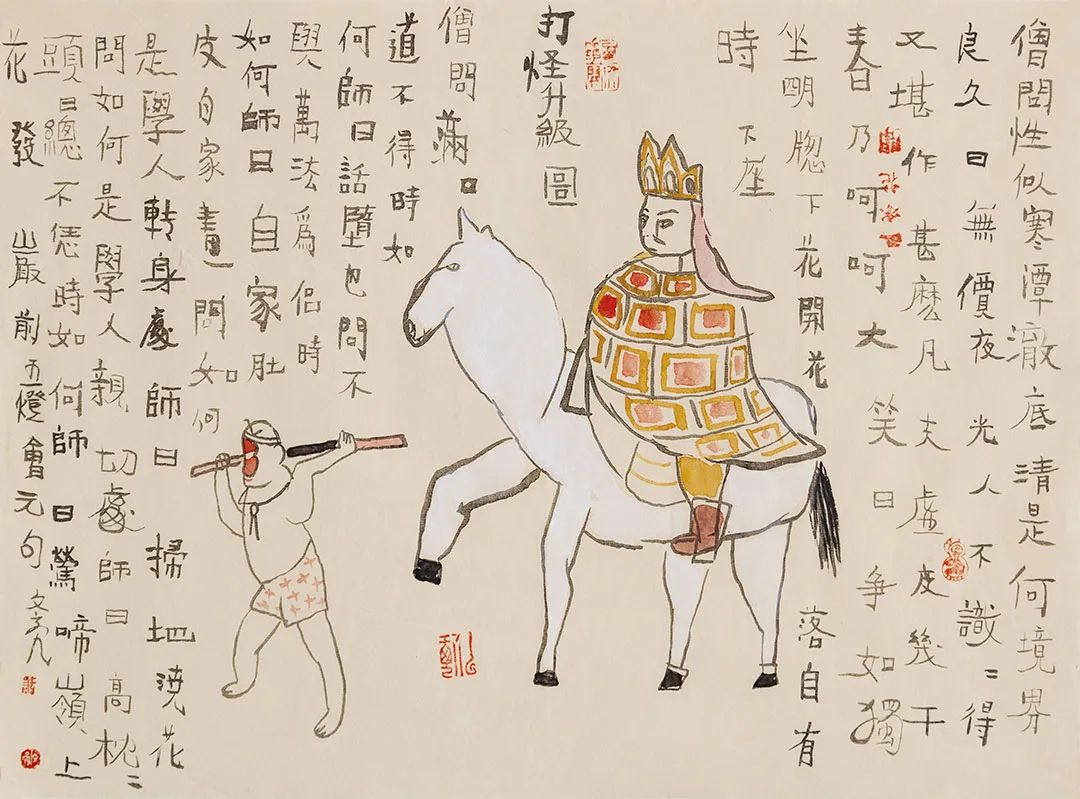 僧問性似寒潭澈底清是何境界
良久曰無價夜光人不識〻得
又堪作甚麽凡夫虛度幾千
春乃呵呵大笑曰爭如獨
坐明牕下花開花落自有
時下座
打怪升級圖
僧問滿口
道不得時如
何師曰話墮也問不
與萬法爲侶時
如何師曰自家肚
皮自家畫問如何
是學人轉身處師曰掃地澆花
問如何是學人親切處師曰高枕〻
頭曰總不恁時如何師曰鶯啼嶺上
花發巖前五燈會元句